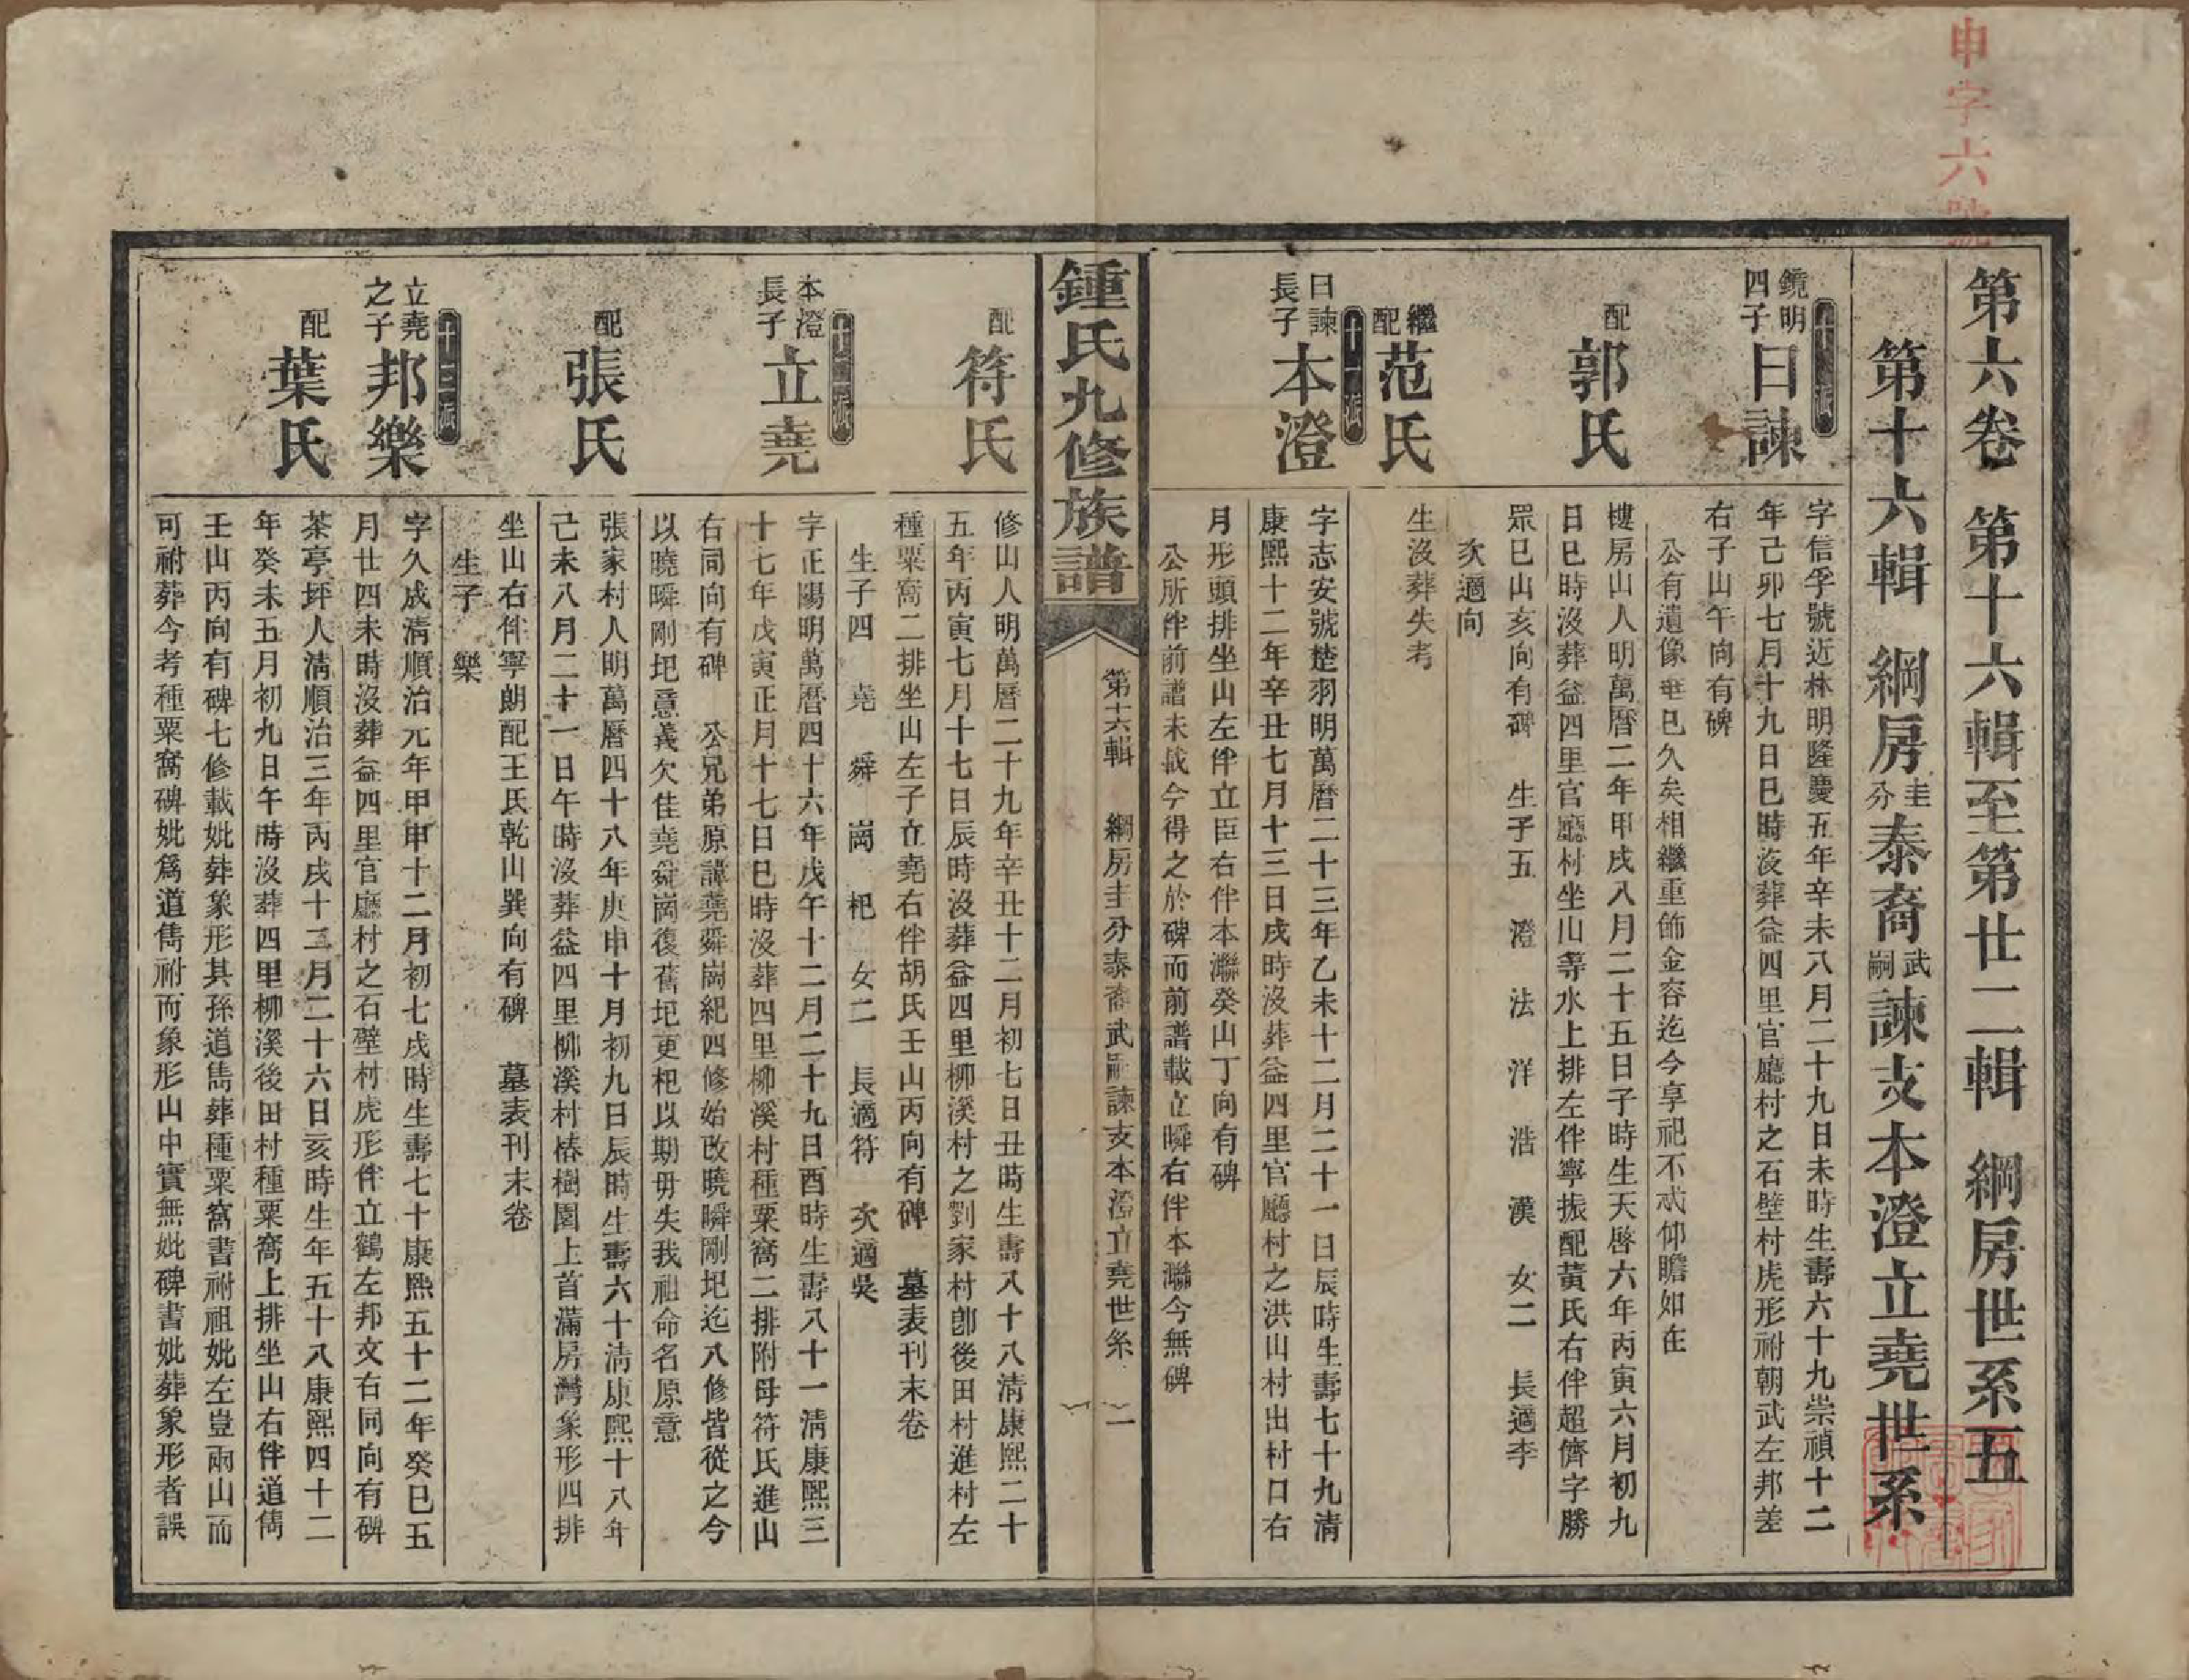 申字六號
第六卷 第十六輯至第廿二輯 綱房世系五
第十六輯 綱房圭分泰裔武嗣諫支本澄立堯世系
鏡明四子
日諫
字信孚號近林明隆慶五年辛未八月二十九日未時生壽六十九崇禎十二
年己卯七月十九日巳時沒葬益四里官廳村之石壁村虎形祔朝武左邦差
右子山午向有碑
公有遺像 巳久矣相繼重飾金容迄今享祀不忒仰瞻如在
配
郭氏
樓房山人明萬曆二年甲戌八月二十五日子時生天啓六年丙寅六月初九
日巳時沒葬益四里官廳村坐山等水上排左伴寧振配黃氏右伴超儕字勝
眾巳山亥向有碑 生子五 澄 法 洋 浩 漢 女二 長適李
次適向
繼配
范氏
生沒葬失考
十一派
日諫長子
本澄
字志安號楚羽明萬曆二十三年乙未十二月二十一日辰時生壽七十九清
康熙十二年辛丑七月十三日戌時沒葬益四里官廳村之洪山村出村口右
月形頭排坐山左伴立臣右伴本瀿癸山丁向有碑
公所伴前譜未載今得之於碑而前譜載立瞬右伴本瀿今無碑
鍾氏九修族譜
第十六輯 綱房圭分泰裔武嗣諫支本澄立堯世系 一
配
符氏
修山人明萬曆二十九年辛丑十二月初七日丑時生壽八十八清康熙二十
五年丙寅七月十七日辰時沒葬益四里柳溪村之劉家村卽後田村進村左
種粟窩二排坐山左子立堯右伴胡氏壬山丙向有碑 墓表刊末卷
生子四 堯 舜 崗 杞 女二 長適符 次適吳
本澄長子
立堯
字正陽明萬曆四十六年戊午十二月二十九日酉時生壽八十一清康熙三
十七年戊寅正月十七日巳時沒葬四里柳溪村種粟窩二排附母符氏進山
右同向有碑 公兄弟原諱堯舜崗紀四修始改曉瞬剛圯迄八修皆從之今
以曉瞬剛圯意義欠佳堯舜崗復舊圯更杞以期毋失我祖命名原意
配
張氏
張家村人明萬曆四十八年庚申十月初九日辰時生壽六十清康熙十八年
己未八月二十一日午時沒葬益四里柳溪村椿樹園上首滿房灣象形四排
坐山右伴寧朗配王氏乾山巽向有碑 墓表刊末卷
生子 樂
立堯之子
邦樂
字久成清順治元年甲申十二月初七戌時生壽七十康熙五十二年癸巳五
月廿四未時沒葬益四里官廳村之石壁村虎形伴立鶴左邦文右同向有碑
配
葉氏
茶亭坪人清順治三年丙戌十二月二十六日亥時生年五十八康熙四十二
年癸未五月初九日午時沒葬四里柳溪後田村種粟窩上排坐山右伴道儁
壬山丙向有碑七修載妣葬象形其孫道儁葬種粟窩書祔祖妣左豈兩山而
可祔葬今考種粟窩碑妣爲道儁祔而象形山中實無妣碑書妣葬象形者誤